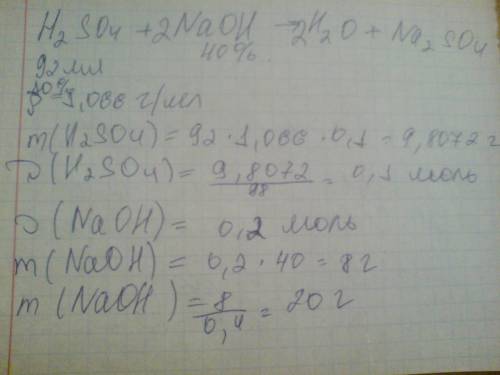 H₂SO₄ + 2NaOH → 2H₂O + Na₂SO₄
40%
92 мл
10%
ρ = 1,066 г/мл
m(H₂SO₄) = 92 · 1,066 · 0,1 = 9,8072 г
ν(H₂SO₄) = 9,8072/98 = 0,1 моль
ν(NaOH) = 0,2 моль
m(NaOH) = 0,2 · 40 = 8 г
m(NaOH) = 8/0,4 = 20 г